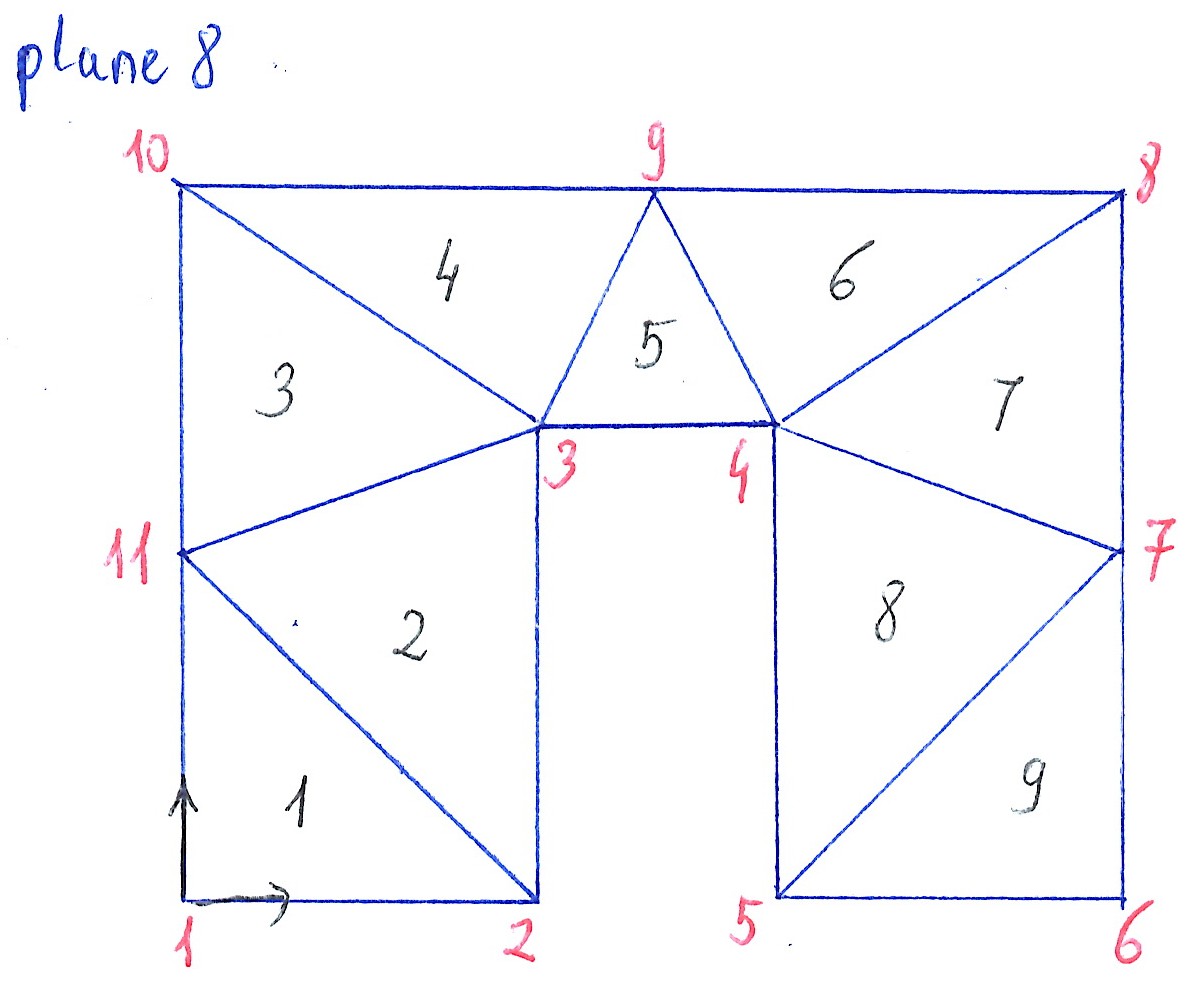 plane 8
10 9 8
4 6
5
3 7
3 4
11 7
2 8
1 9
1 2 5 6